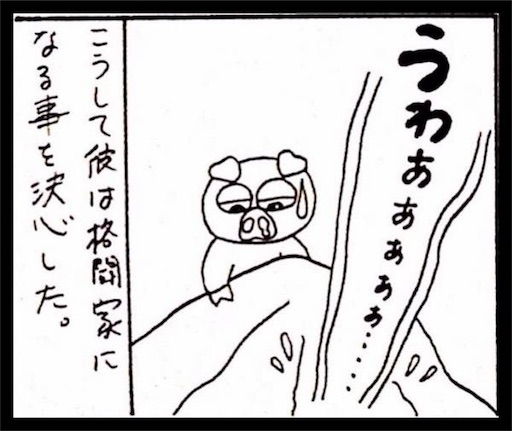 うわぁぁぁぁぁ……
こうして彼は格闘家に
なる事を決心した。